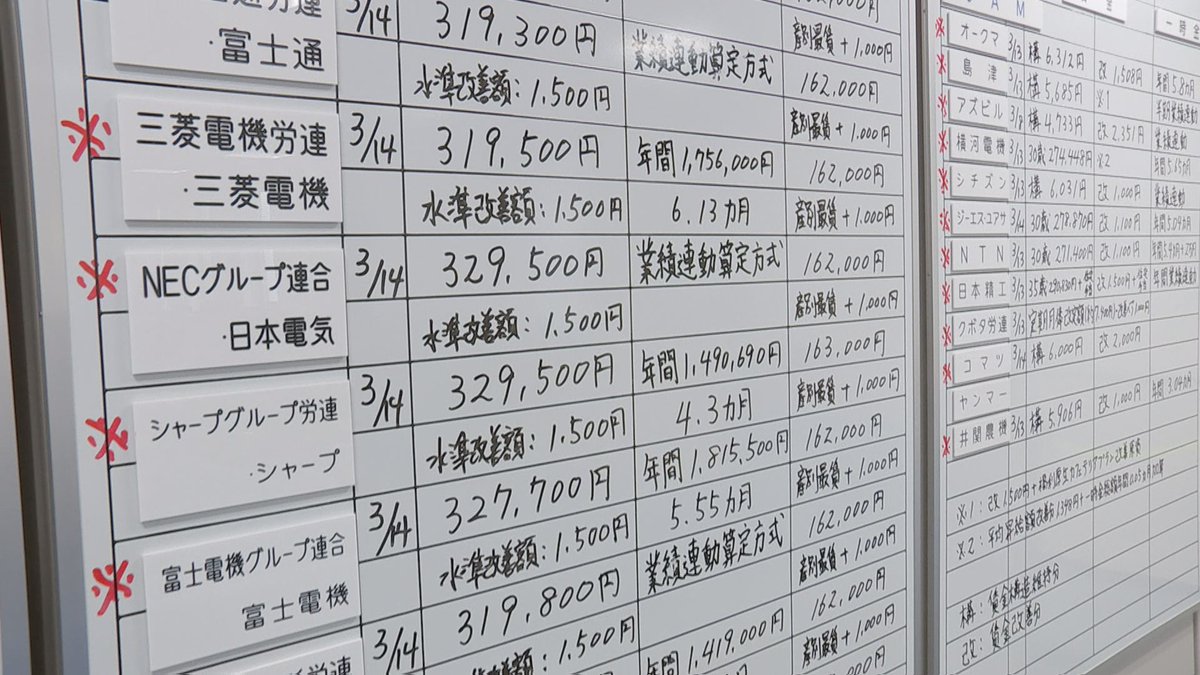 ・富士通
3/14
319,300円
業績連動算定方式
産別最賃+1,000円
水準改善額:1,500円
162,000円
※
三菱電機労連
・三菱電機
3/14
319,500円
年間1,756,000円
産別最賃+1,000円
水準改善額:1,500円
6.13カ月
162,000円
※
NECグループ連合
・日本電気
3/14
329,500円
業績連動算定方式
産別最賃+1,000円
水準改善額:1,500円
162,000円
※
シャープグループ労連
・シャープ
3/14
329,500円
年間1,490,690円
産別最賃+1,000円
水準改善額:1,500円
4.3カ月
163,000円
※
富士電機グループ連合
富士電機
3/14
327,700円
年間1,815,500円
産別最賃+1,000円
水準改善額:1,500円
5.55カ月
162,000円
3/14
319,800円
業績連動算定方式
産別最賃+1,000円
1,500円
162,000円
年間1,419,000円
産別最賃+1,000円
A M
金
一時金
※ オークマ 3/13 構 6,312円 改 1,508円 年間5.8カ月
※ 島津 3/13 構 5,685円 ※1 半期業績連動
※ アズビル 構 4,733円 改 2,351円 業績連動
※ 横河電機 3/13 30歳 274,448円 ※2
※ シチズン 3/13 構 6,031円 改 1,000円 業績連動
※ ジーエス・ユアサ 3/14 30歳 278,870円 改 1,100円
※ NTN 3/13 30歳 271,400円 改 1,100円
※ 日本精工 3/13 35歳 改 1,500円+ 年間業績連動
※ クボタ労連 3/13
※ コマツ 3/14 構 6,000円 改 2,000円
ヤンマー
※ 井関農機 3/13 構 5,906円 改 1,000円
※1:改1,500円+福利厚生カフェテリアプラン改善原資
※2:平均
構:賃金構造維持分
改:賃金改善分